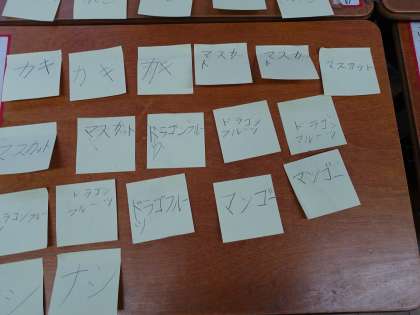 カキ
カキ
カメ
マスカッ
ト
マスカッ
ト
マスカット
マスカット
マスカット
ドラゴンフルー
ツ
ドラゴン
フルーツ
ドラゴン
フルーツ
ドラゴンフルー
ツ
ドラゴン
フルーツ
ドラゴフルー
ツ
マンゴー
マンゴー
シ
ナシ